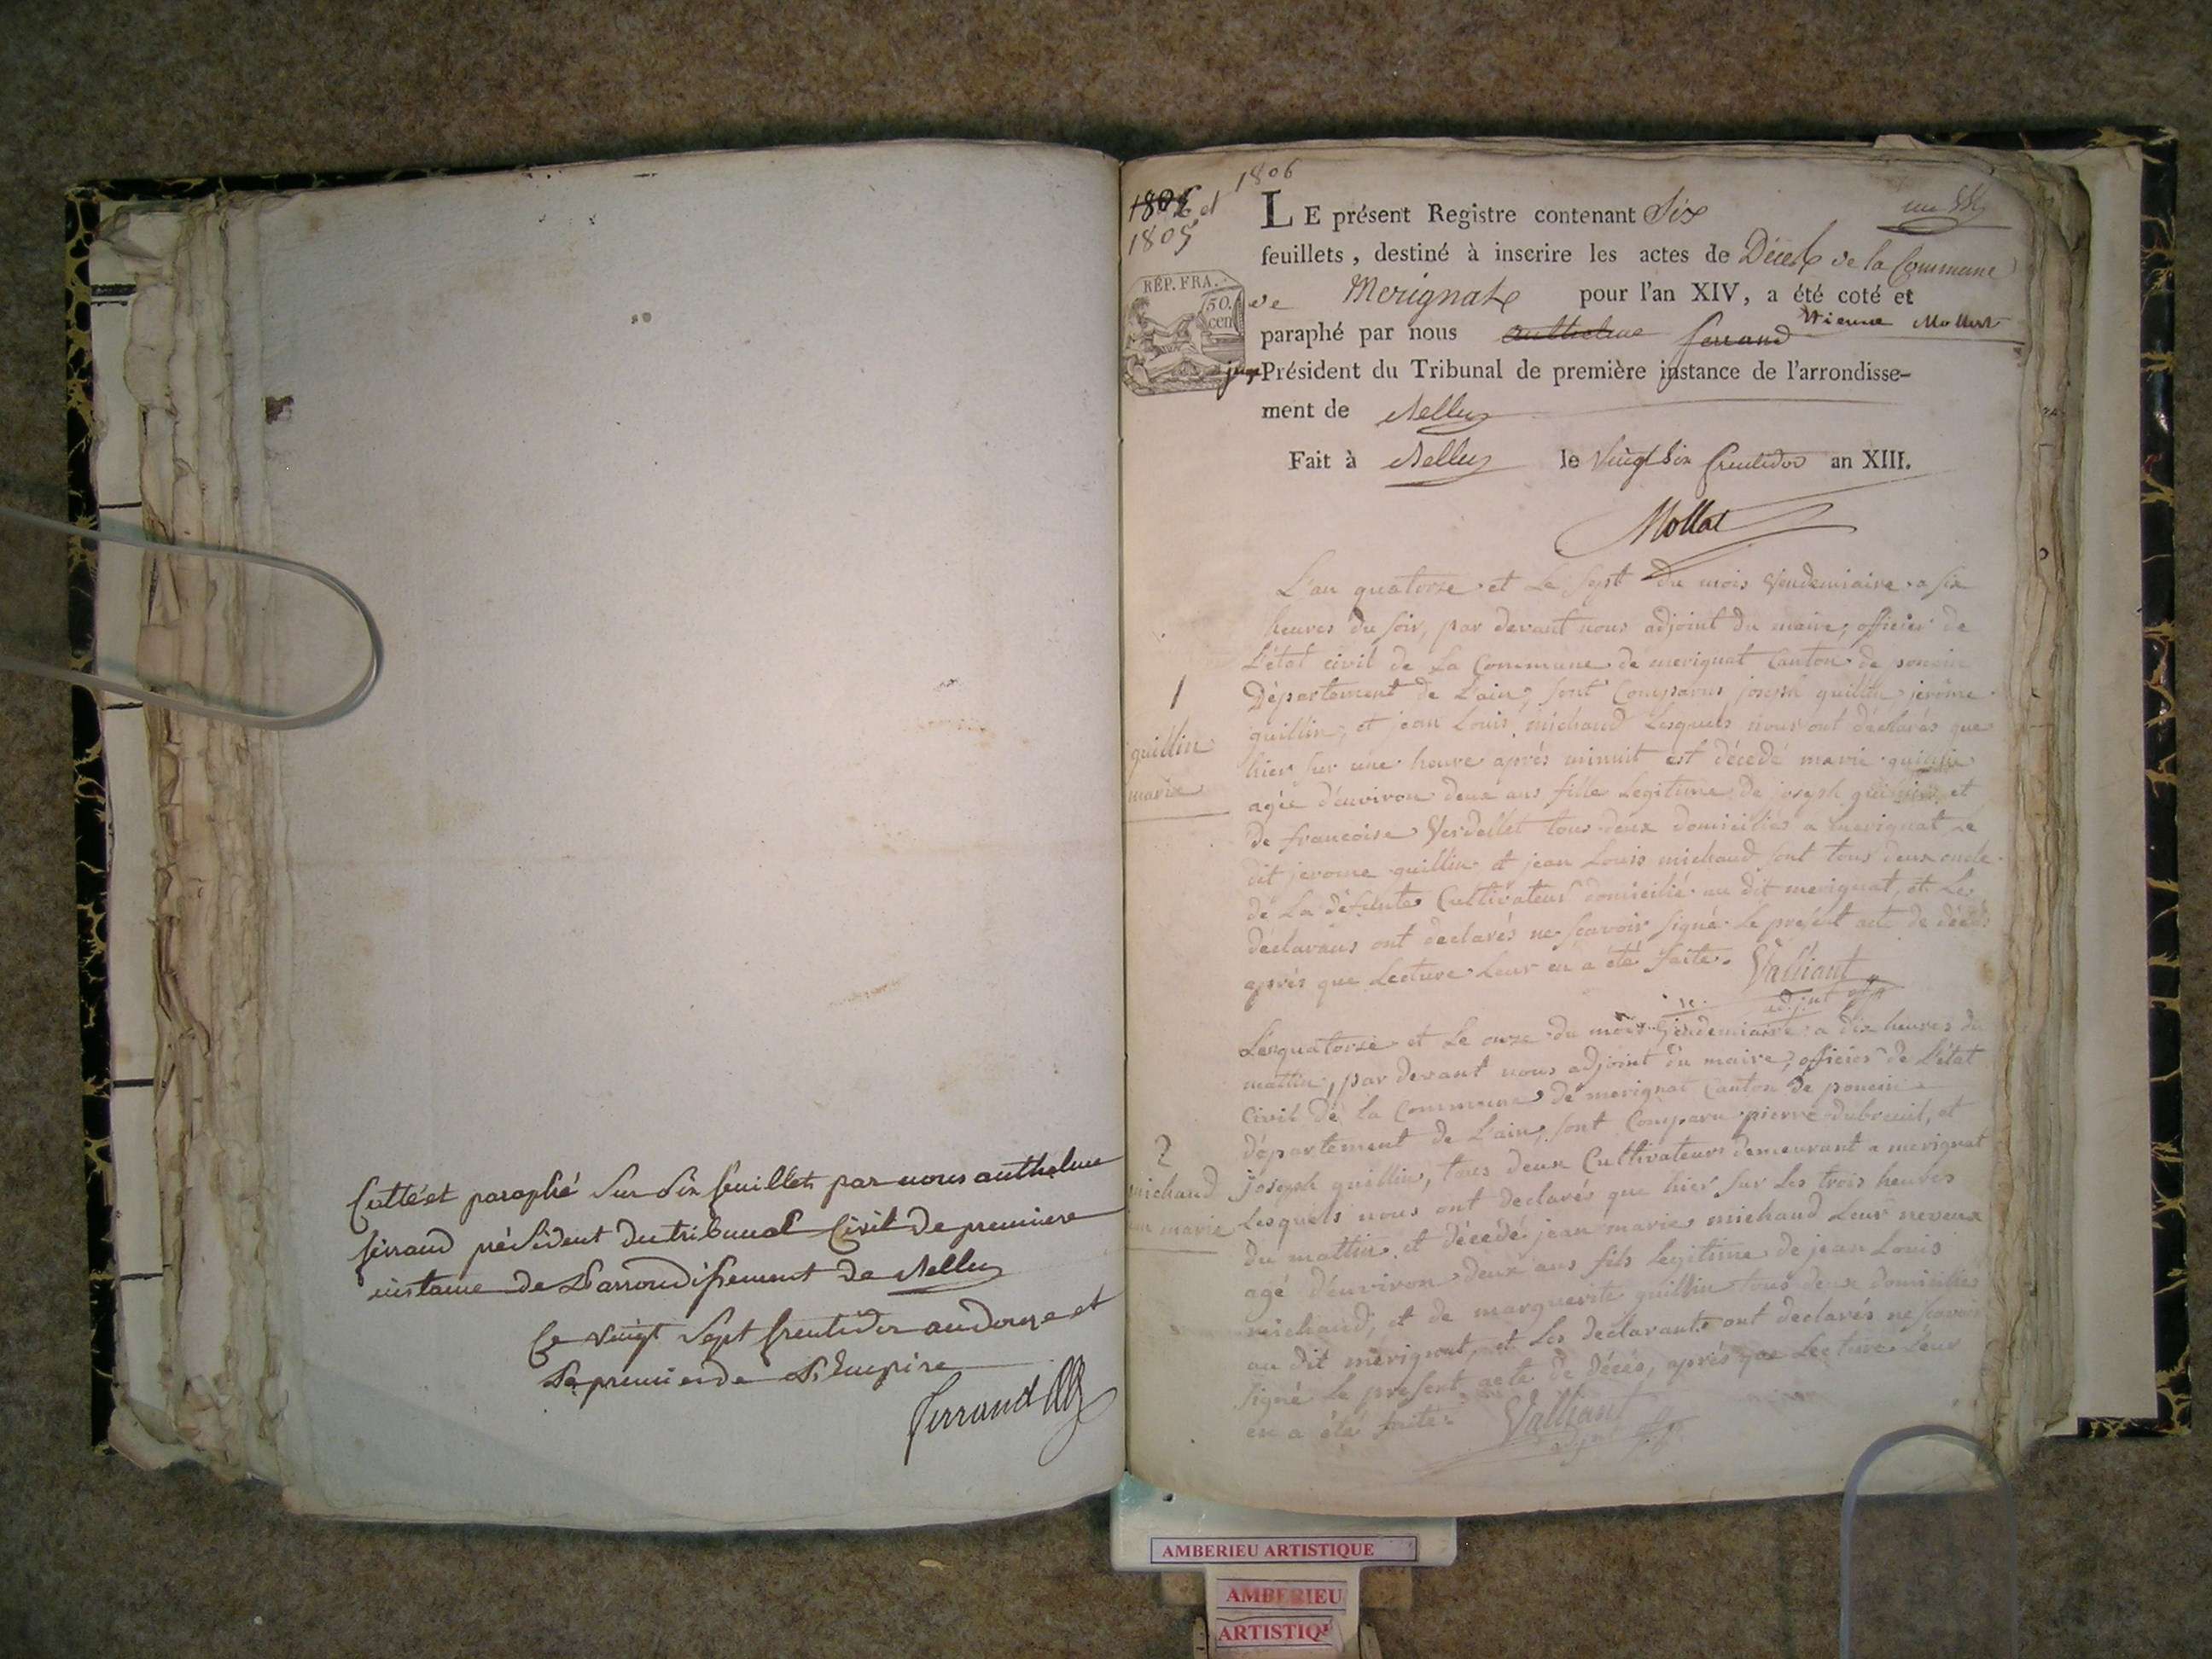 Cotté et paraphé sur six feuillets par nous anthelme
ferrand président du tribunal Civil de premiere
instance de L'arrondissement de Nelluy
Ce vingt sept fructidor an douze et
Le premier de L'Empire
ferrand
1806
1805
RÉP. FRA.
50.
cen
LE présent Registre contenant Six
feuillets, destiné à inscrire les actes de Décès de la Commune
de Merignat pour l'an XIV, a été coté et
paraphé par nous anthelme ferrand Etienne Mollet
juge Président du Tribunal de première instance de l'arrondisse-
ment de Nelluy
Fait à Nelluy le Vingt Six fructidor an XIII.
Mollet
1
guillin
marie
L'an quatorze et Le sept du mois Vendemiaire a six
heures du soir, par devant nous adjoint du maire, officier de
L'état civil de La Commune de merignat Canton de poncin
Département de L'ain, sont Comparus joseph guillin, jerôme
guillin, et jean Louis michaud Lesquels nous ont déclarés que
hier sur une heure après minuit est décedé marie guillin
agée d'environ deux ans fille Legitime de joseph guillin et
de francoise Verdellet tous deux domiciliés a merignat Le
dit jerome guillin et jean Louis michaud sont tous deux oncle
de La défunte Cultivateur domicilié au dit merignat, et Les
déclarans ont declarés ne scavoir signé Le présent acte de décès
après que Lecture Leur en a été faite. Valliant
adjnt
2
michaud
jean marie
L'an quatorze et Le onze du mois Vendemiaire a dix heures du
mattin, par devant nous adjoint du maire, officier de L'état
Civil de la Commune de merignat Canton de poncin
département de L'ain, sont Comparu pierre dubreuil, et
joseph guillin, tous deux Cultivateurs demeurant a merignat
Lesquels nous ont declarés que hier sur Les trois heures
du mattin et décedé jean marie michaud Leur neveux
agé d'environ deux ans fils Legitime de jean Louis
michaud, et de marguerite guillin tous deux domiciliés
au dit merignat, et Les declarants ont declarés ne scavoir
signé Le present acte de Décès, après que Lecture Leur
en a été faite. Valliant
adjnt
AMBERIEU ARTISTIQUE
AMBERIEU
ARTISTIQU